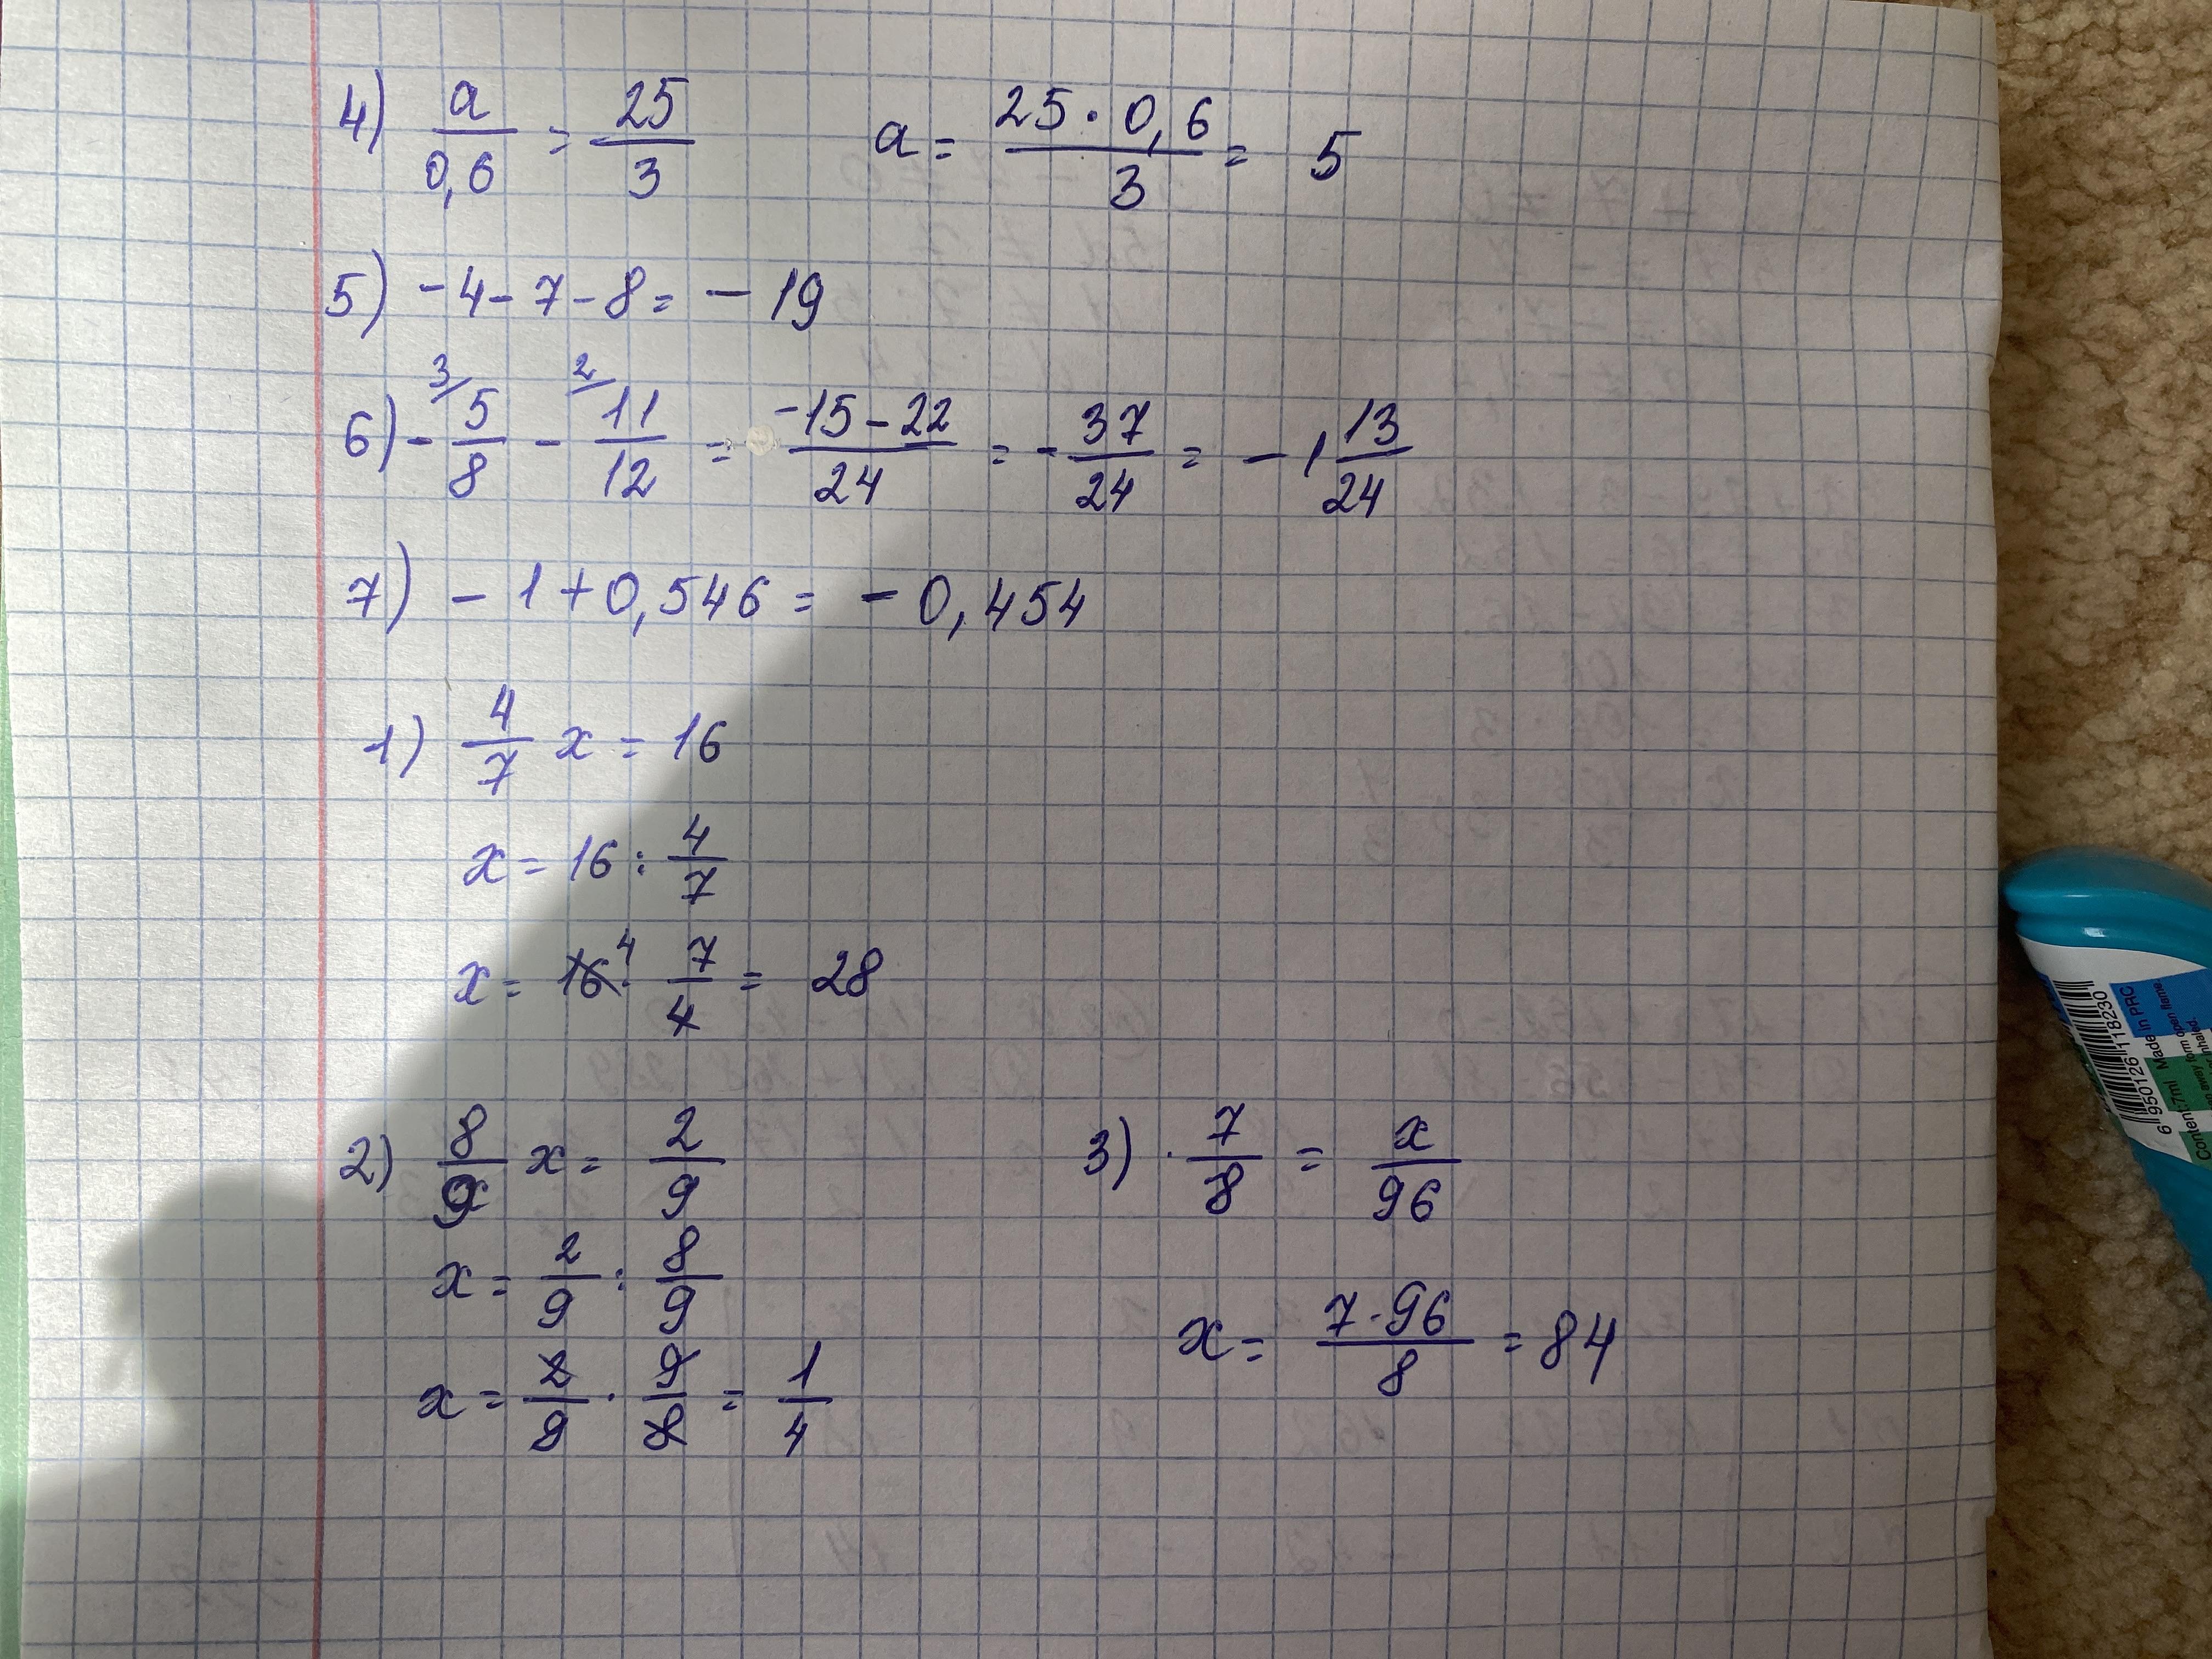 4) a/0,6 = 25/3 a = 25·0,6/3 = 5
5) -4-7-8 = -19
6) - 3/ 5/8 - 2/ 11/12 = -15-22/24 = -37/24 = -1 13/24
7) -1+0,546 = -0,454
1) 4/7 x = 16
x = 16 : 4/7
x = 16 4 · 7/4 = 28
2) 8/9 x = 2/9
x = 2/9 : 8/9
x = 2/9 · 9/8 = 1/4
3) · 7/8 = x/96
x = 7·96/8 = 84
6 950126 118230
Made in PRC
Content:7ml
away form open flame.